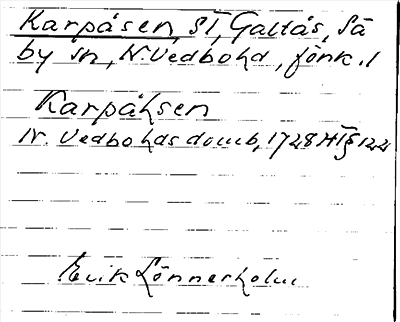 Karpåsen, sl, Galtås, Sä
by sn, N. Vedbohd, jönk. l
Karpåhsen
N. Vedbohds domb, 1728 HT § 122
Erik Lönnerholm